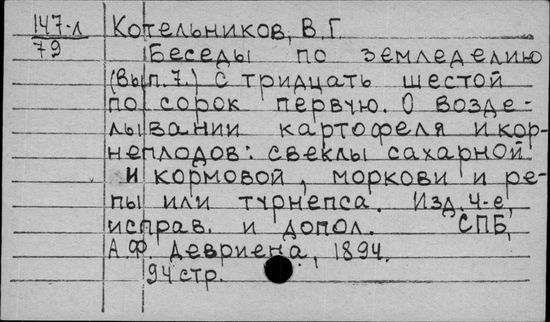 147-л Котельников, В.Г.
79
Беседы по земледелию
(Вып.7.) с тридцать шестой
по сорок первую. О возде-
лывании картофеля и кор-
неплодов: свеклы сахарной
и кормовой, моркови и ре-
пы или турнепса. Изд. 4-е,
исправ. и допол. СПБ,
А.Ф. Девриена, 1894.
94 стр.